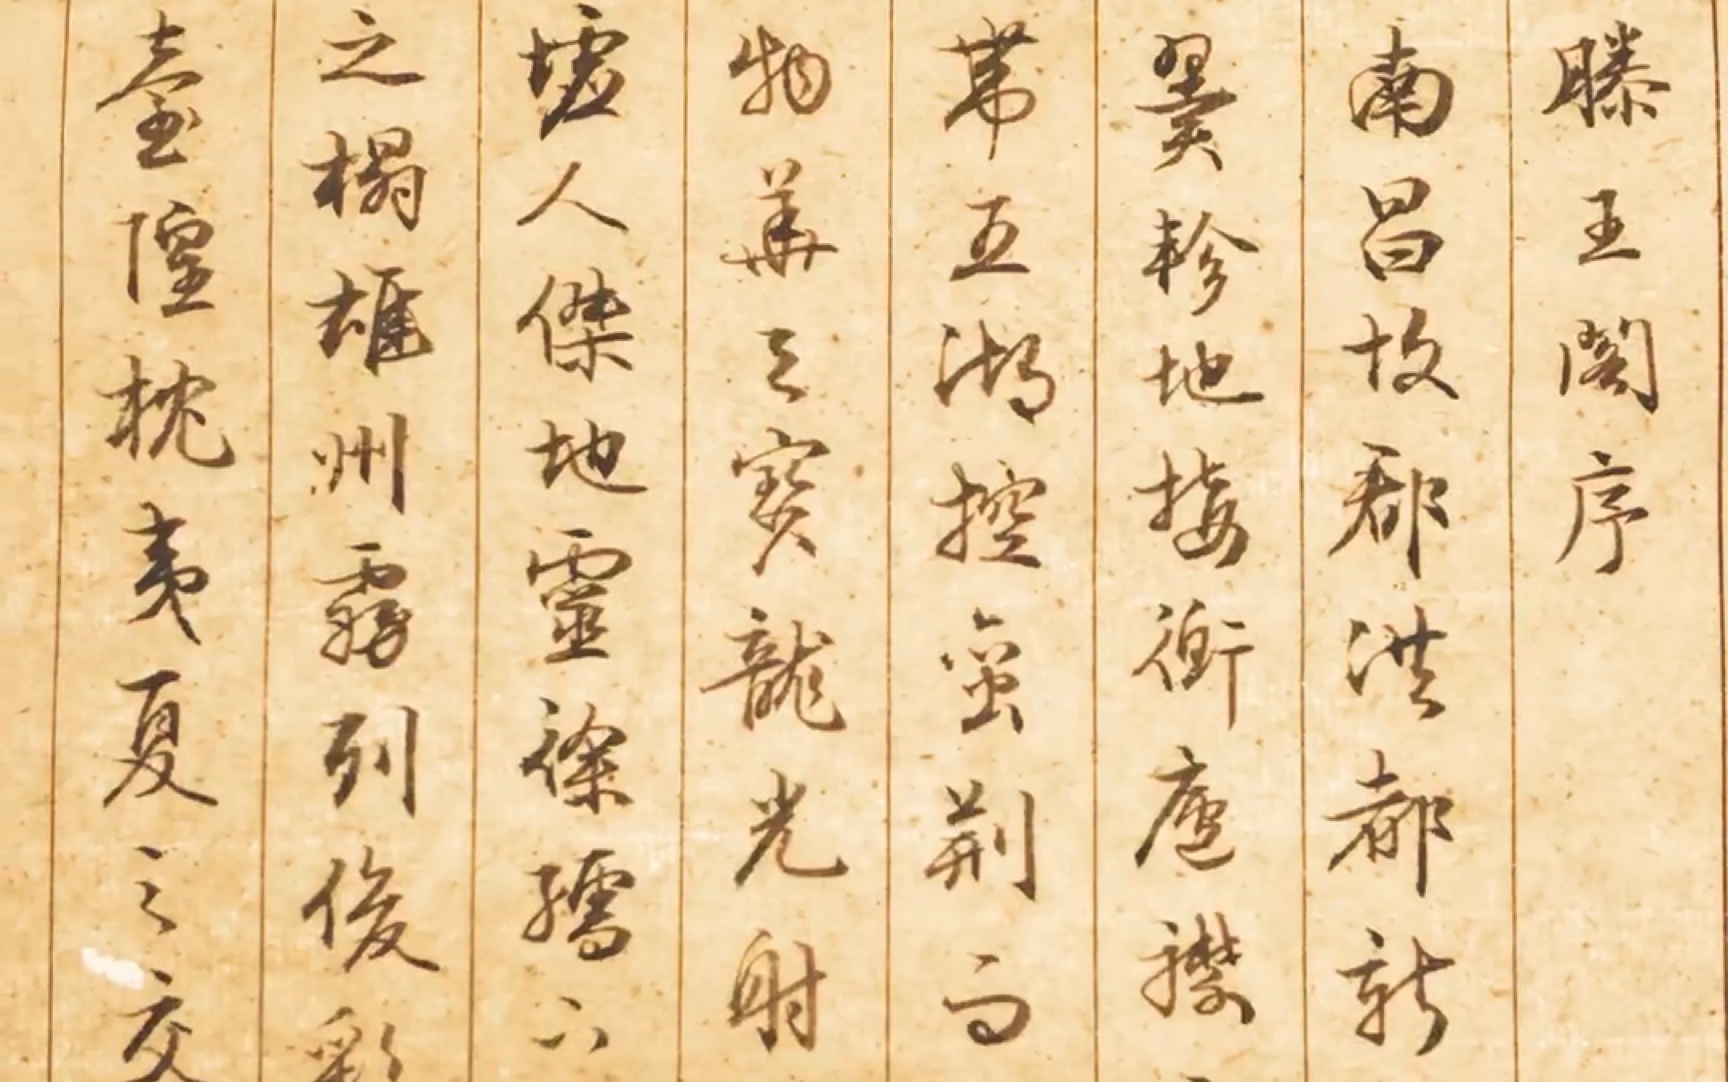 滕王閣序
南昌故郡洪都新
翼軫地接衡廬襟
帶五湖控蠻荊而
物華之寶龍光射
墟人傑地靈徐孺下
之榻雄州霧列俊彩
臺隍枕夷夏之交